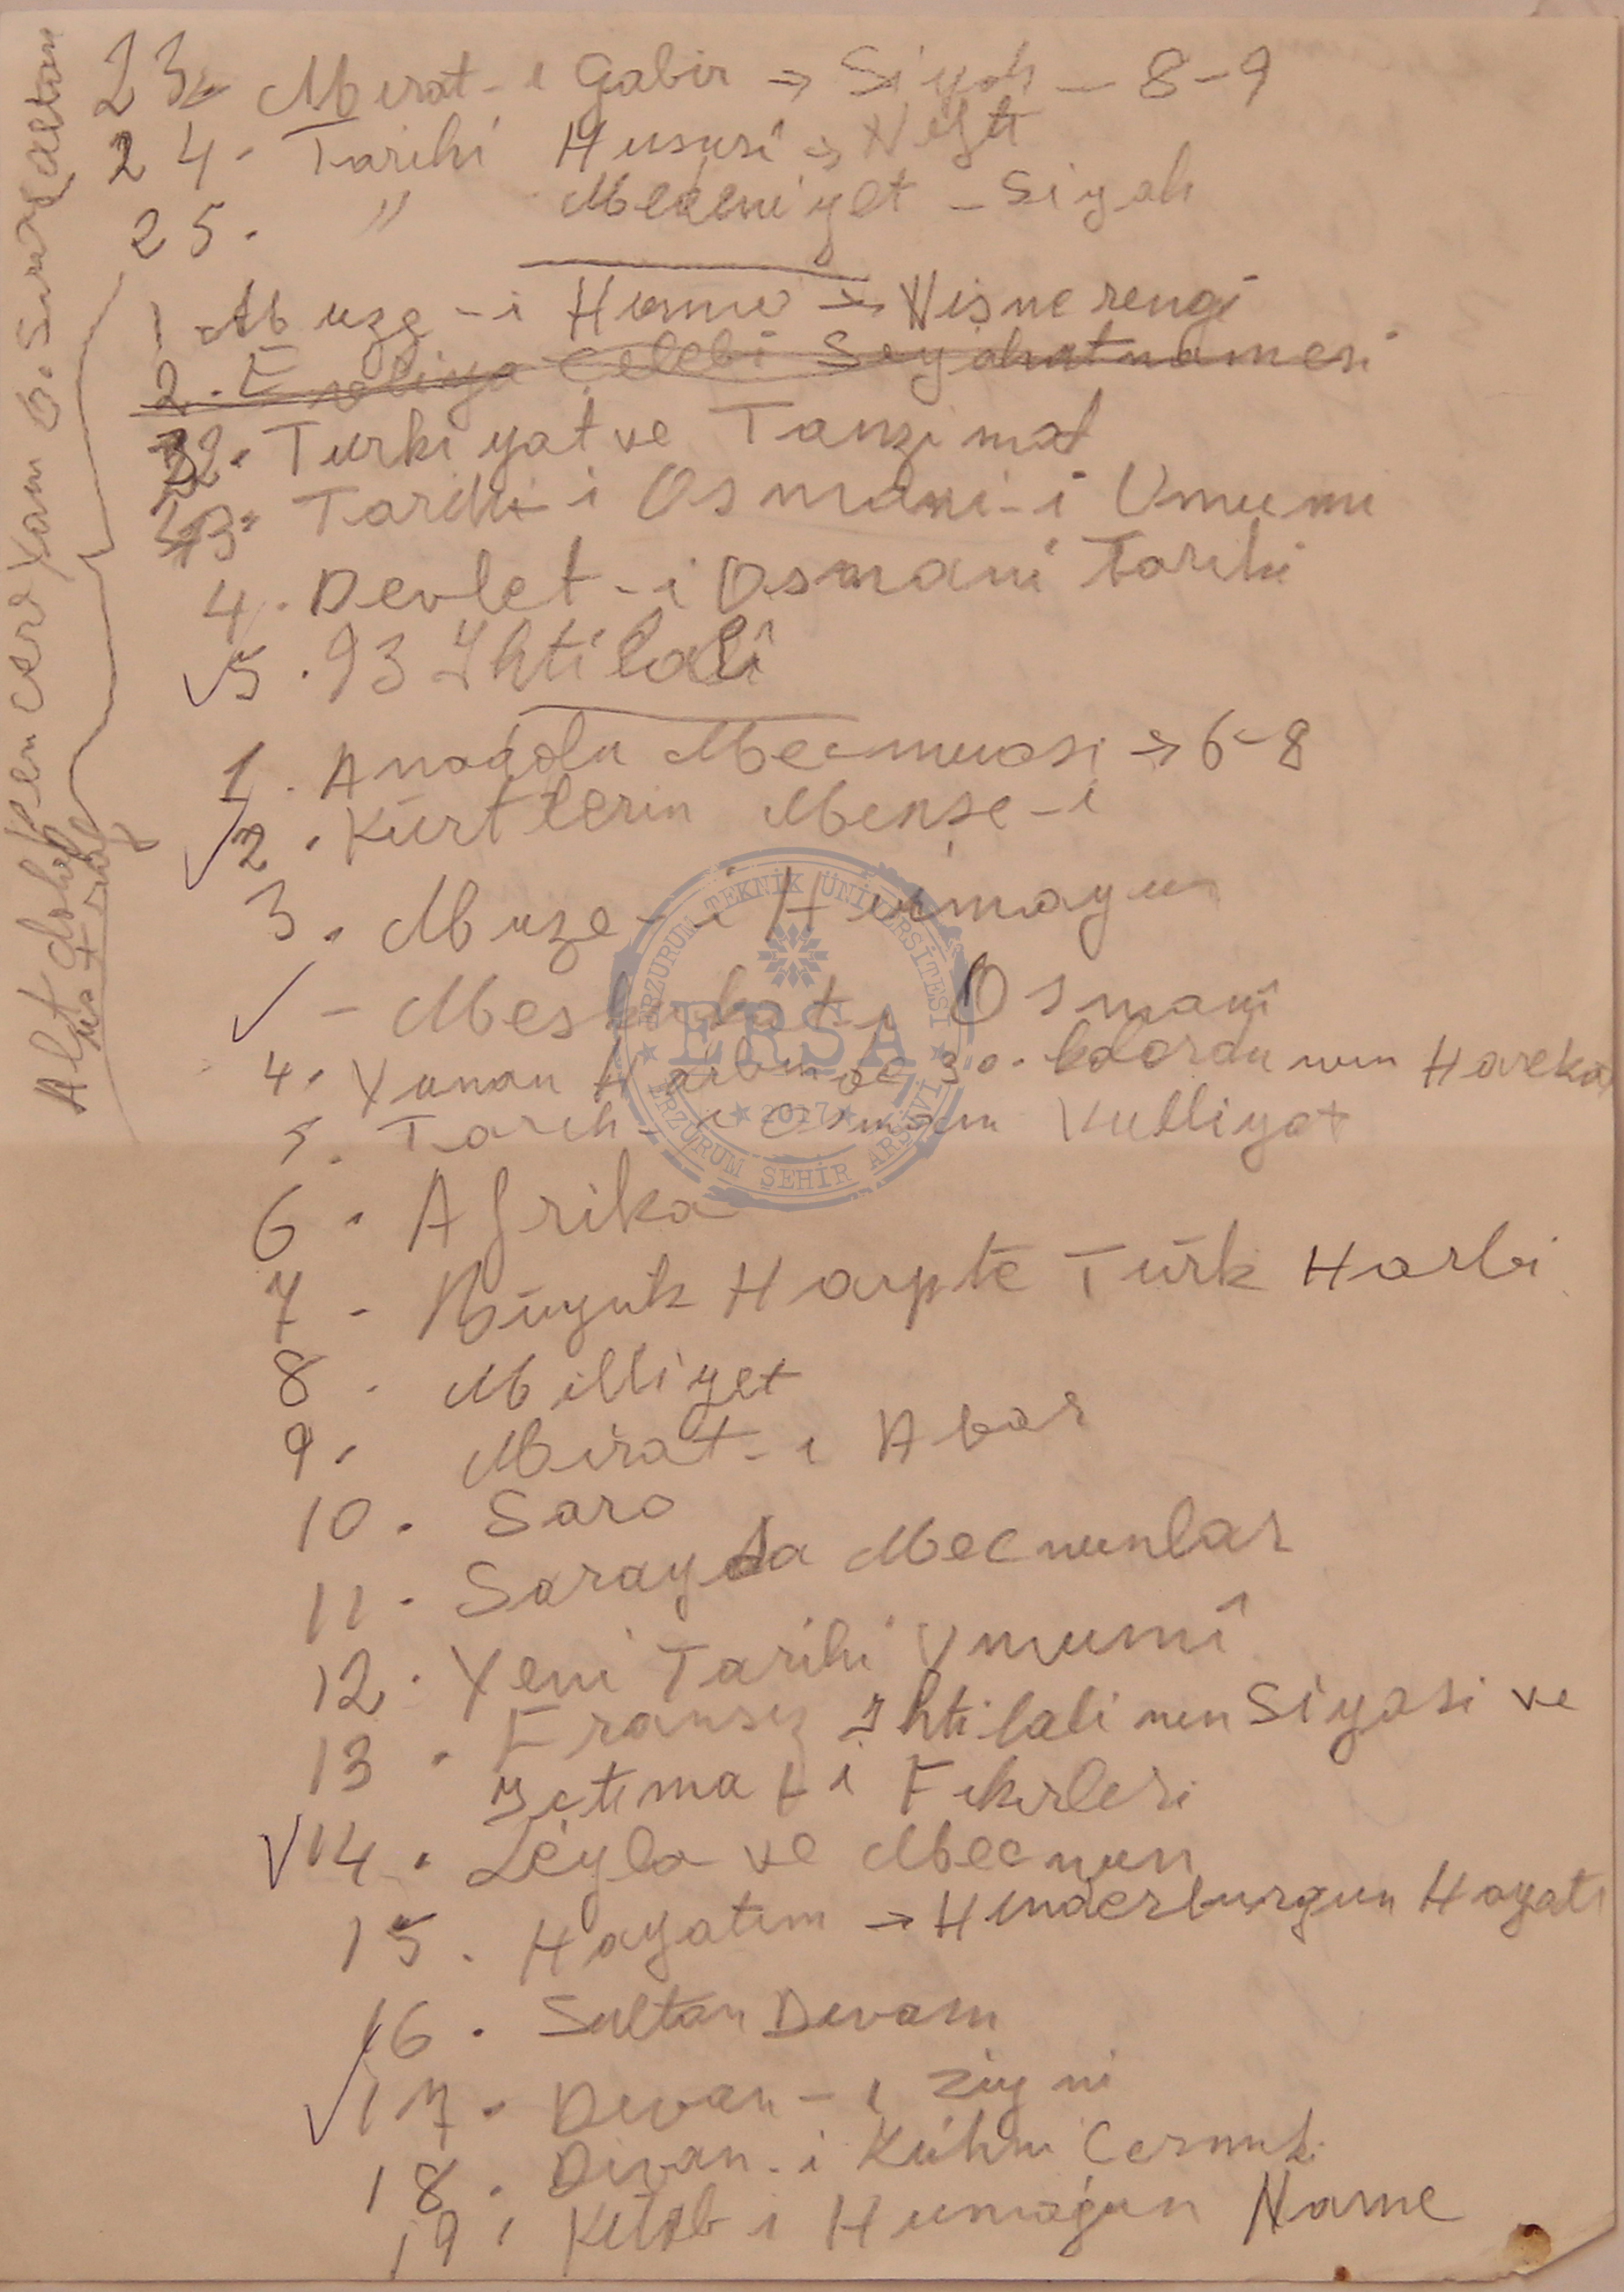 23. Mirat-ı Gabir → Siyah — 8-9
24. Tarihi Hususi → Nefti
25. " Medeniyet - Siyah
1. Muze-i Humu → Vişne rengi
2. Evliya Çelebi Seyahatnamesi
2. Turkiyat ve Tanzimat
3. Tarihi-i Osmani-i Umumi
4. Devlet-i Osmani Tarihi
✓5. 93 Ihtilali
1. Anadolu Mecmuası → 6-8
✓2. Kürtlerin Menşe-i
3. Muze-i Humayun
✓ - Meskukat-ı Osmani
4. Yunan Harbinde 30. kolordu nun Hareka
5. Tarih-i Osmanı Kulliyat
6. Afrika
7. Büyük Harpte Türk Harbi
8. Milliyet
9. Mirat-ı Abar
10. Sara
11. Sarayda Mecnunlar
12. Yeni Tarihi Umumî
13. Fransız Ihtilali nın Siyasi ve
Ictimai Fikirleri
✓14. Leyla ve Mecnun
15. Hayatım → Hindenburgun Hayatı
16. Sultan Divanı
✓17. Divan-ı Ziyni
18. Divan-i Kühni
19. Kitab ı Humayun Name
Alt dolap pencere yanı
ERZURUM TEKNİK ÜNİVERSİTESİ
ERSA
2017
ERZURUM ŞEHİR ARŞİVİ